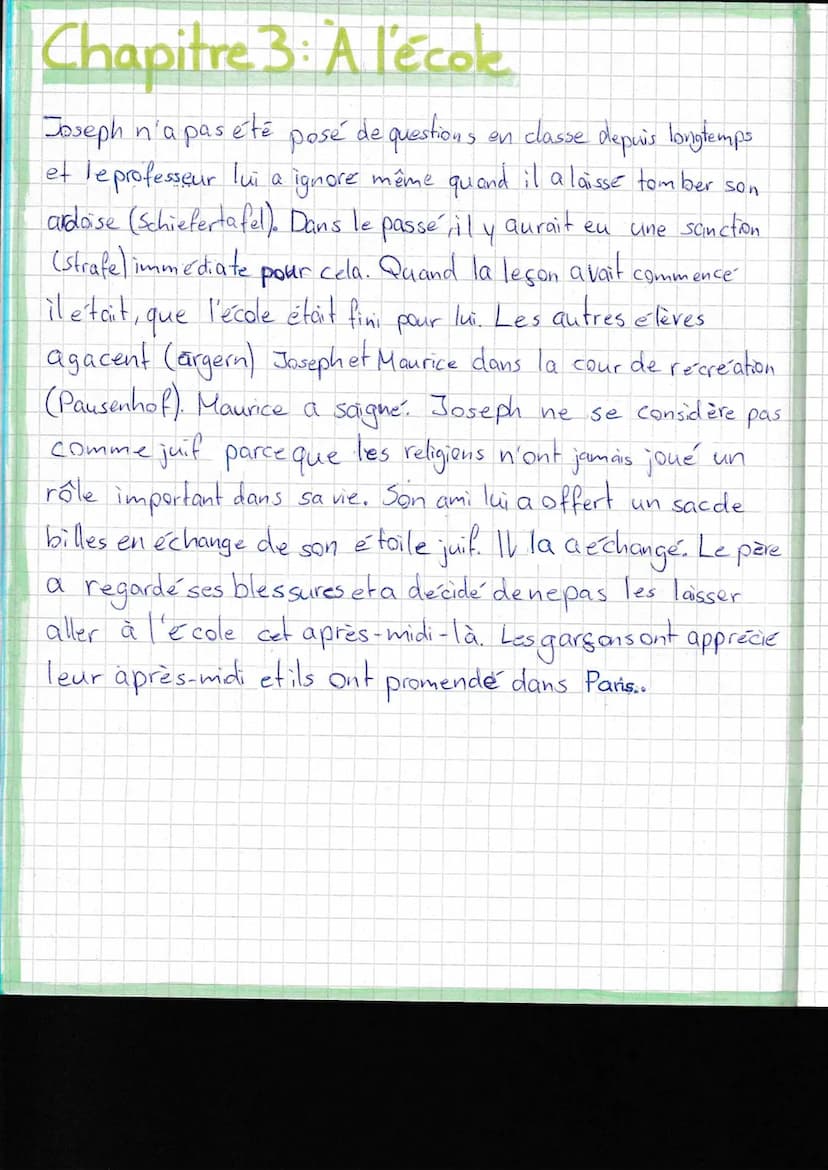 Chapitre 3: À l'école
Joseph n'a pas été posé de questions en classe depuis longtemps
et le professeur lui a ignoré même quand il a laissé tomber son
ardoise (Schiefertafel). Dans le passé, il y aurait eu une sanction
(strafe) immédiate pour cela. Quand la leçon avait commencé
il était, que l'école était fini pour lui. Les autres élèves
agacent (ärgern) Joseph et Maurice dans la cour de récréation
(Pausenhof). Maurice a saigné. Joseph ne se considère pas
comme juif parce que les religions n'ont jamais joué un
rôle important dans sa vie. Son ami lui a offert un sac de
billes en échange de son étoile juif. Il la a échangé. Le père
a regardé ses blessures et a décidé de ne pas les laisser
aller à l'école cet après-midi-là. Les garçons ont apprécié
leur après-midi et ils ont promendé dans Paris..